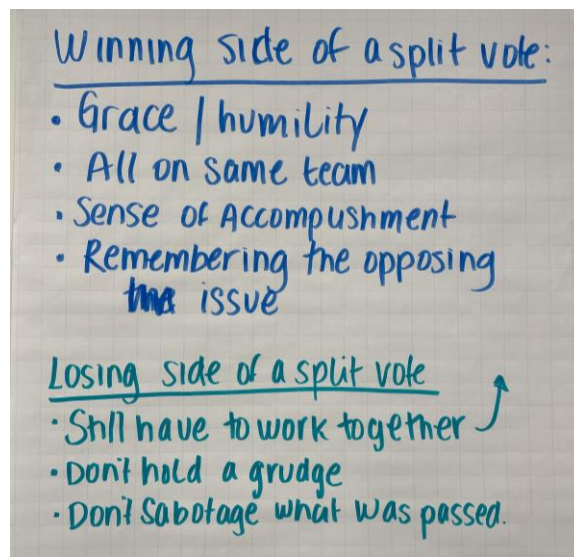 Winning side of a split vote:
• Grace / humility
• All on same team
• Sense of Accomplishment
• Remembering the opposing
issue
Losing side of a split vote
• Still have to work together
• Don't hold a grudge
• Don't Sabotage what was passed.